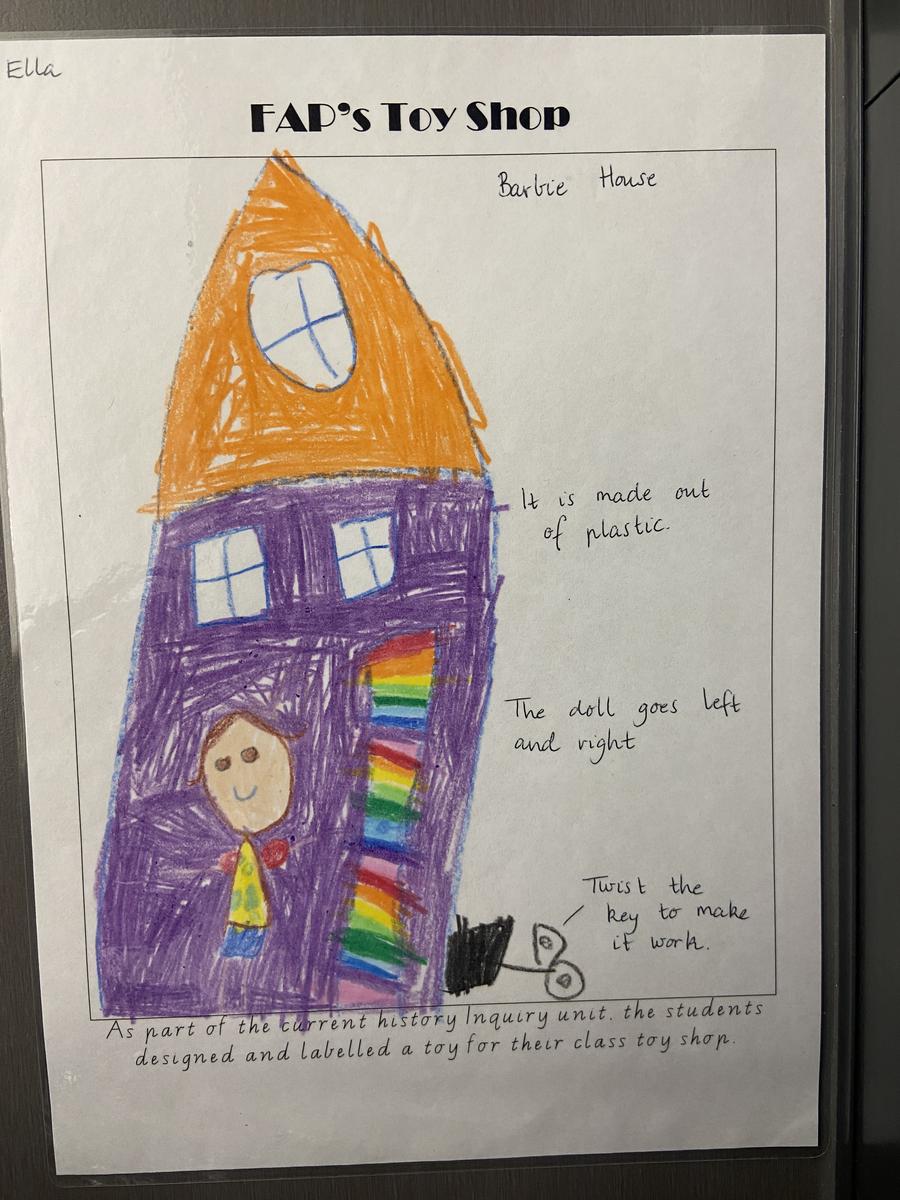 Ella
FAP's Toy Shop
Barbie House
It is made out
of plastic.
The doll goes left
and right
Twist the
key to make
it work.
As part of the current history Inquiry unit. the students
designed and labelled a toy for their class toy shop.